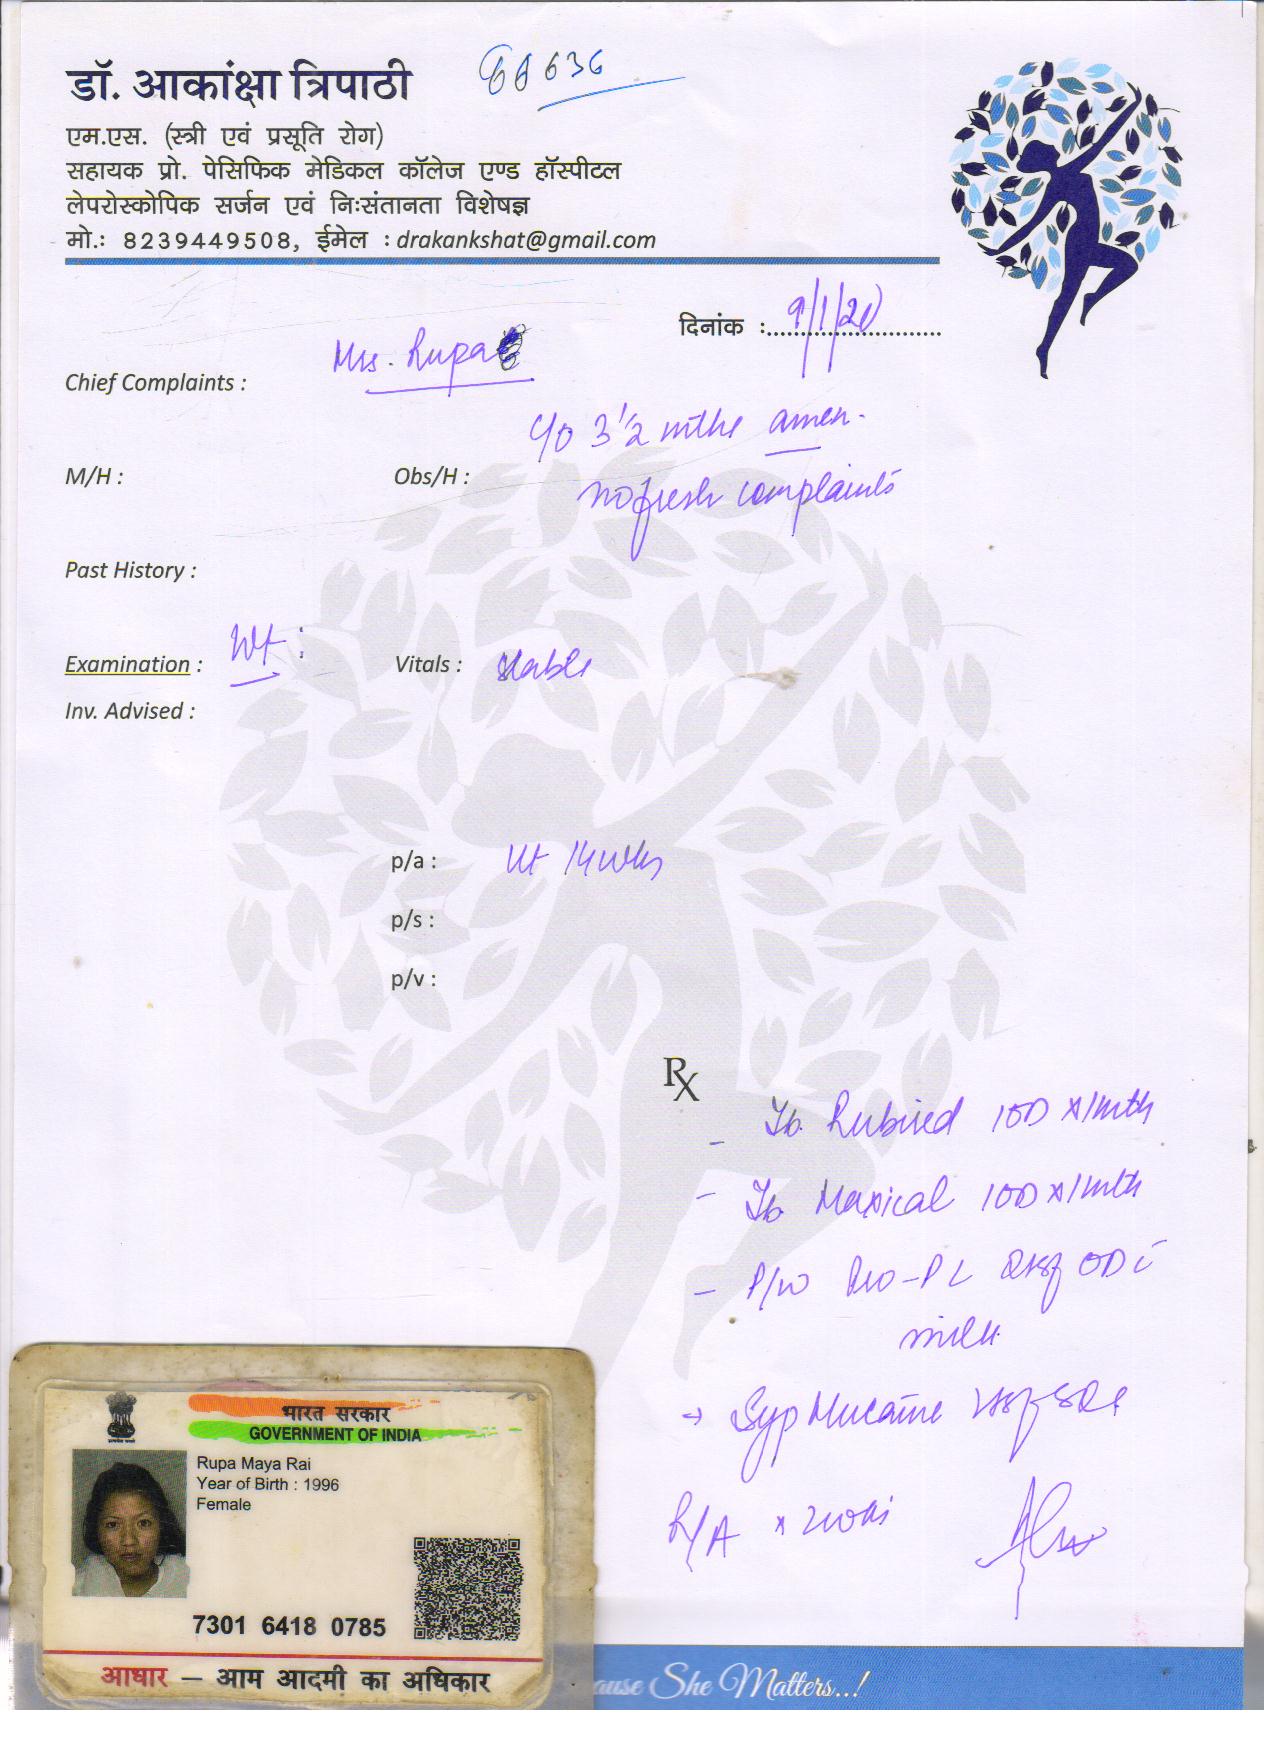 डॉ. आकांक्षा त्रिपाठी
636
एम.एस. (स्त्री एवं प्रसूति रोग)
सहायक प्रो. पेसिफिक मेडिकल कॉलेज एण्ड हॉस्पीटल
लेपरोस्कोपिक सर्जन एवं निःसंतानता विशेषज्ञ
मो.: 8239449508, ईमेल : drakankshat@gmail.com
दिनांक : 9/1/20
Mrs. Rupa
Chief Complaints :
c/o 3 1/2 mths amen.
M/H : Obs/H : no fresh complaints
Past History :
Examination : Wt : Vitals : Stable
Inv. Advised :
p/a : Ut 14 wks
p/s :
p/v :
Rx
- Tb. Rubired 1OD x 1 mth
- Tb Maxical 1OD x 1 mth
- P/w Pro-PL 2tsf OD c
milk
→ Syp Mucaine
R/A x 2 wks
भारत सरकार
GOVERNMENT OF INDIA
Rupa Maya Rai
Year of Birth : 1996
Female
7301 6418 0785
आधार – आम आदमी का अधिकार
ause She Matters..!